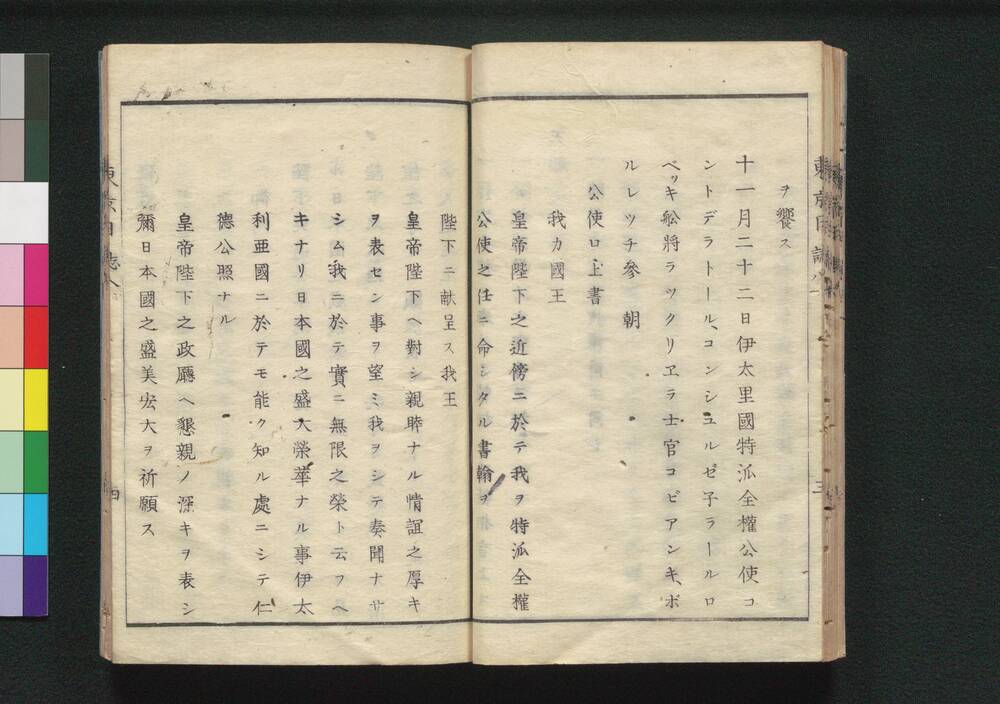 ヲ饗ス
十一月二十二日伊太里國特派全權公使コ
ントデラトール、コンシユルゼ子ラールロ
ベッキ舩將ラックリヱラ士官コビアンキ、ボ
ルレツチ參朝
公使口上書
我カ國王
皇帝陛下之近傍ニ於テ我ヲ特派全權
公使之任ニ命シタル書翰ヲ
陛下ニ献呈ス我王
皇帝陛下ヘ對シ親睦ナル情誼之厚キ
ヲ表セン事ヲ望ミ我ヲシテ奏聞ナサ
シム我ニ於テ實ニ無限之榮ト云フヘ
キナリ日本國之盛大榮華ナル事伊太
利亜國ニ於テモ能ク知ル處ニシテ仁
德公照ナル
皇帝陛下之政廳ヘ懇親ノ深キヲ表シ
彌日本國之盛美宏大ヲ祈願ス
四